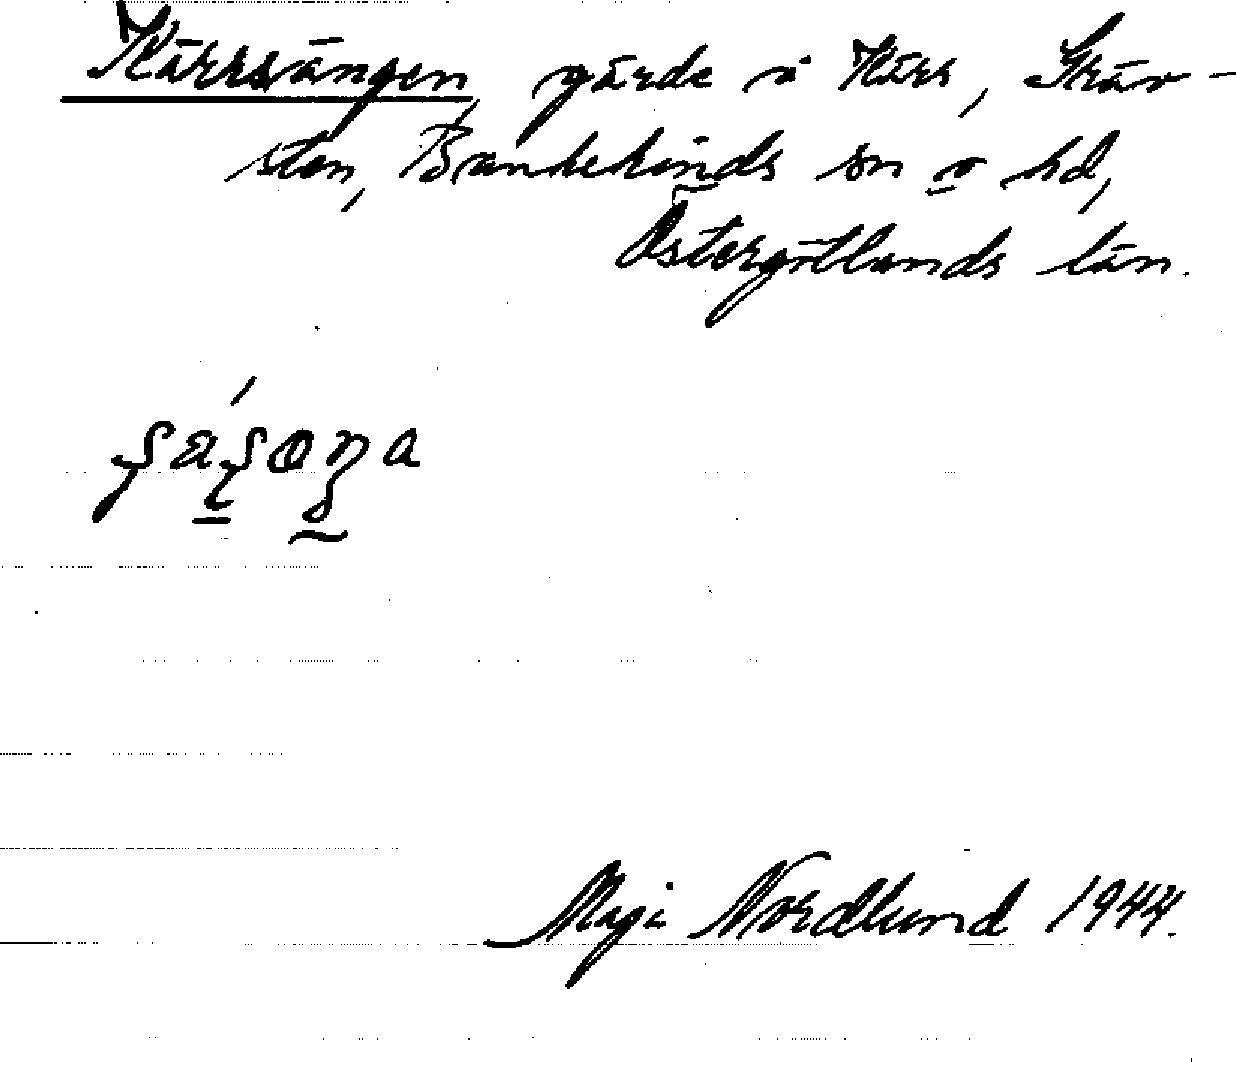 Kärrsängen gärde i Kärr, Skäv-
sten, Bankekinds sn o hd,
Östergötlands län.
Maji Nordlund 1944.